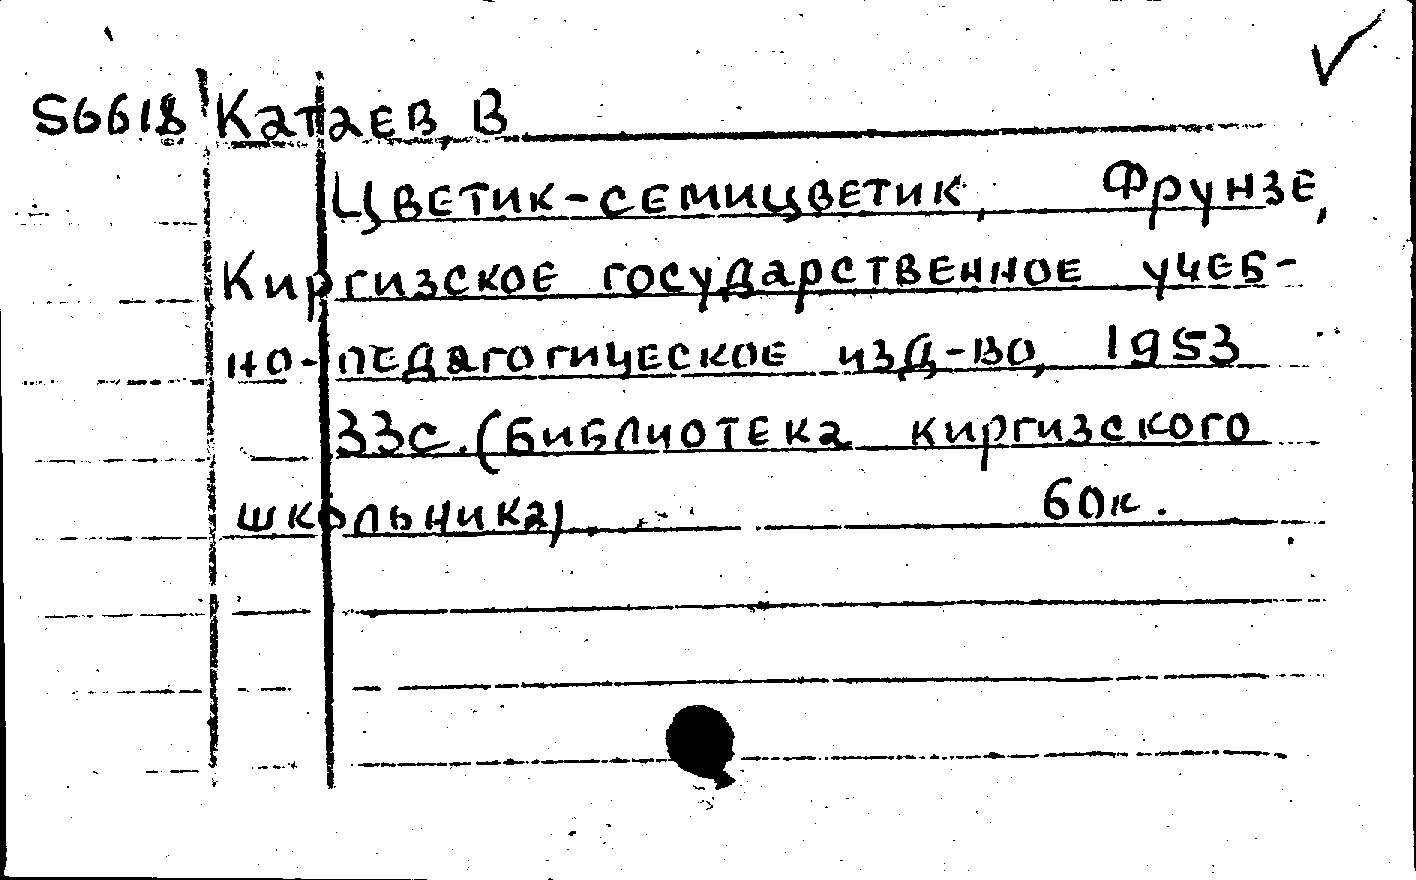 S6618 Катаев, В
Цветик-семицветик, Фрунзе,
Киргизское государственное учеб-
но-педагогическое изд-во, 1953
33с. (Библиотека киргизского
школьника). 60к.